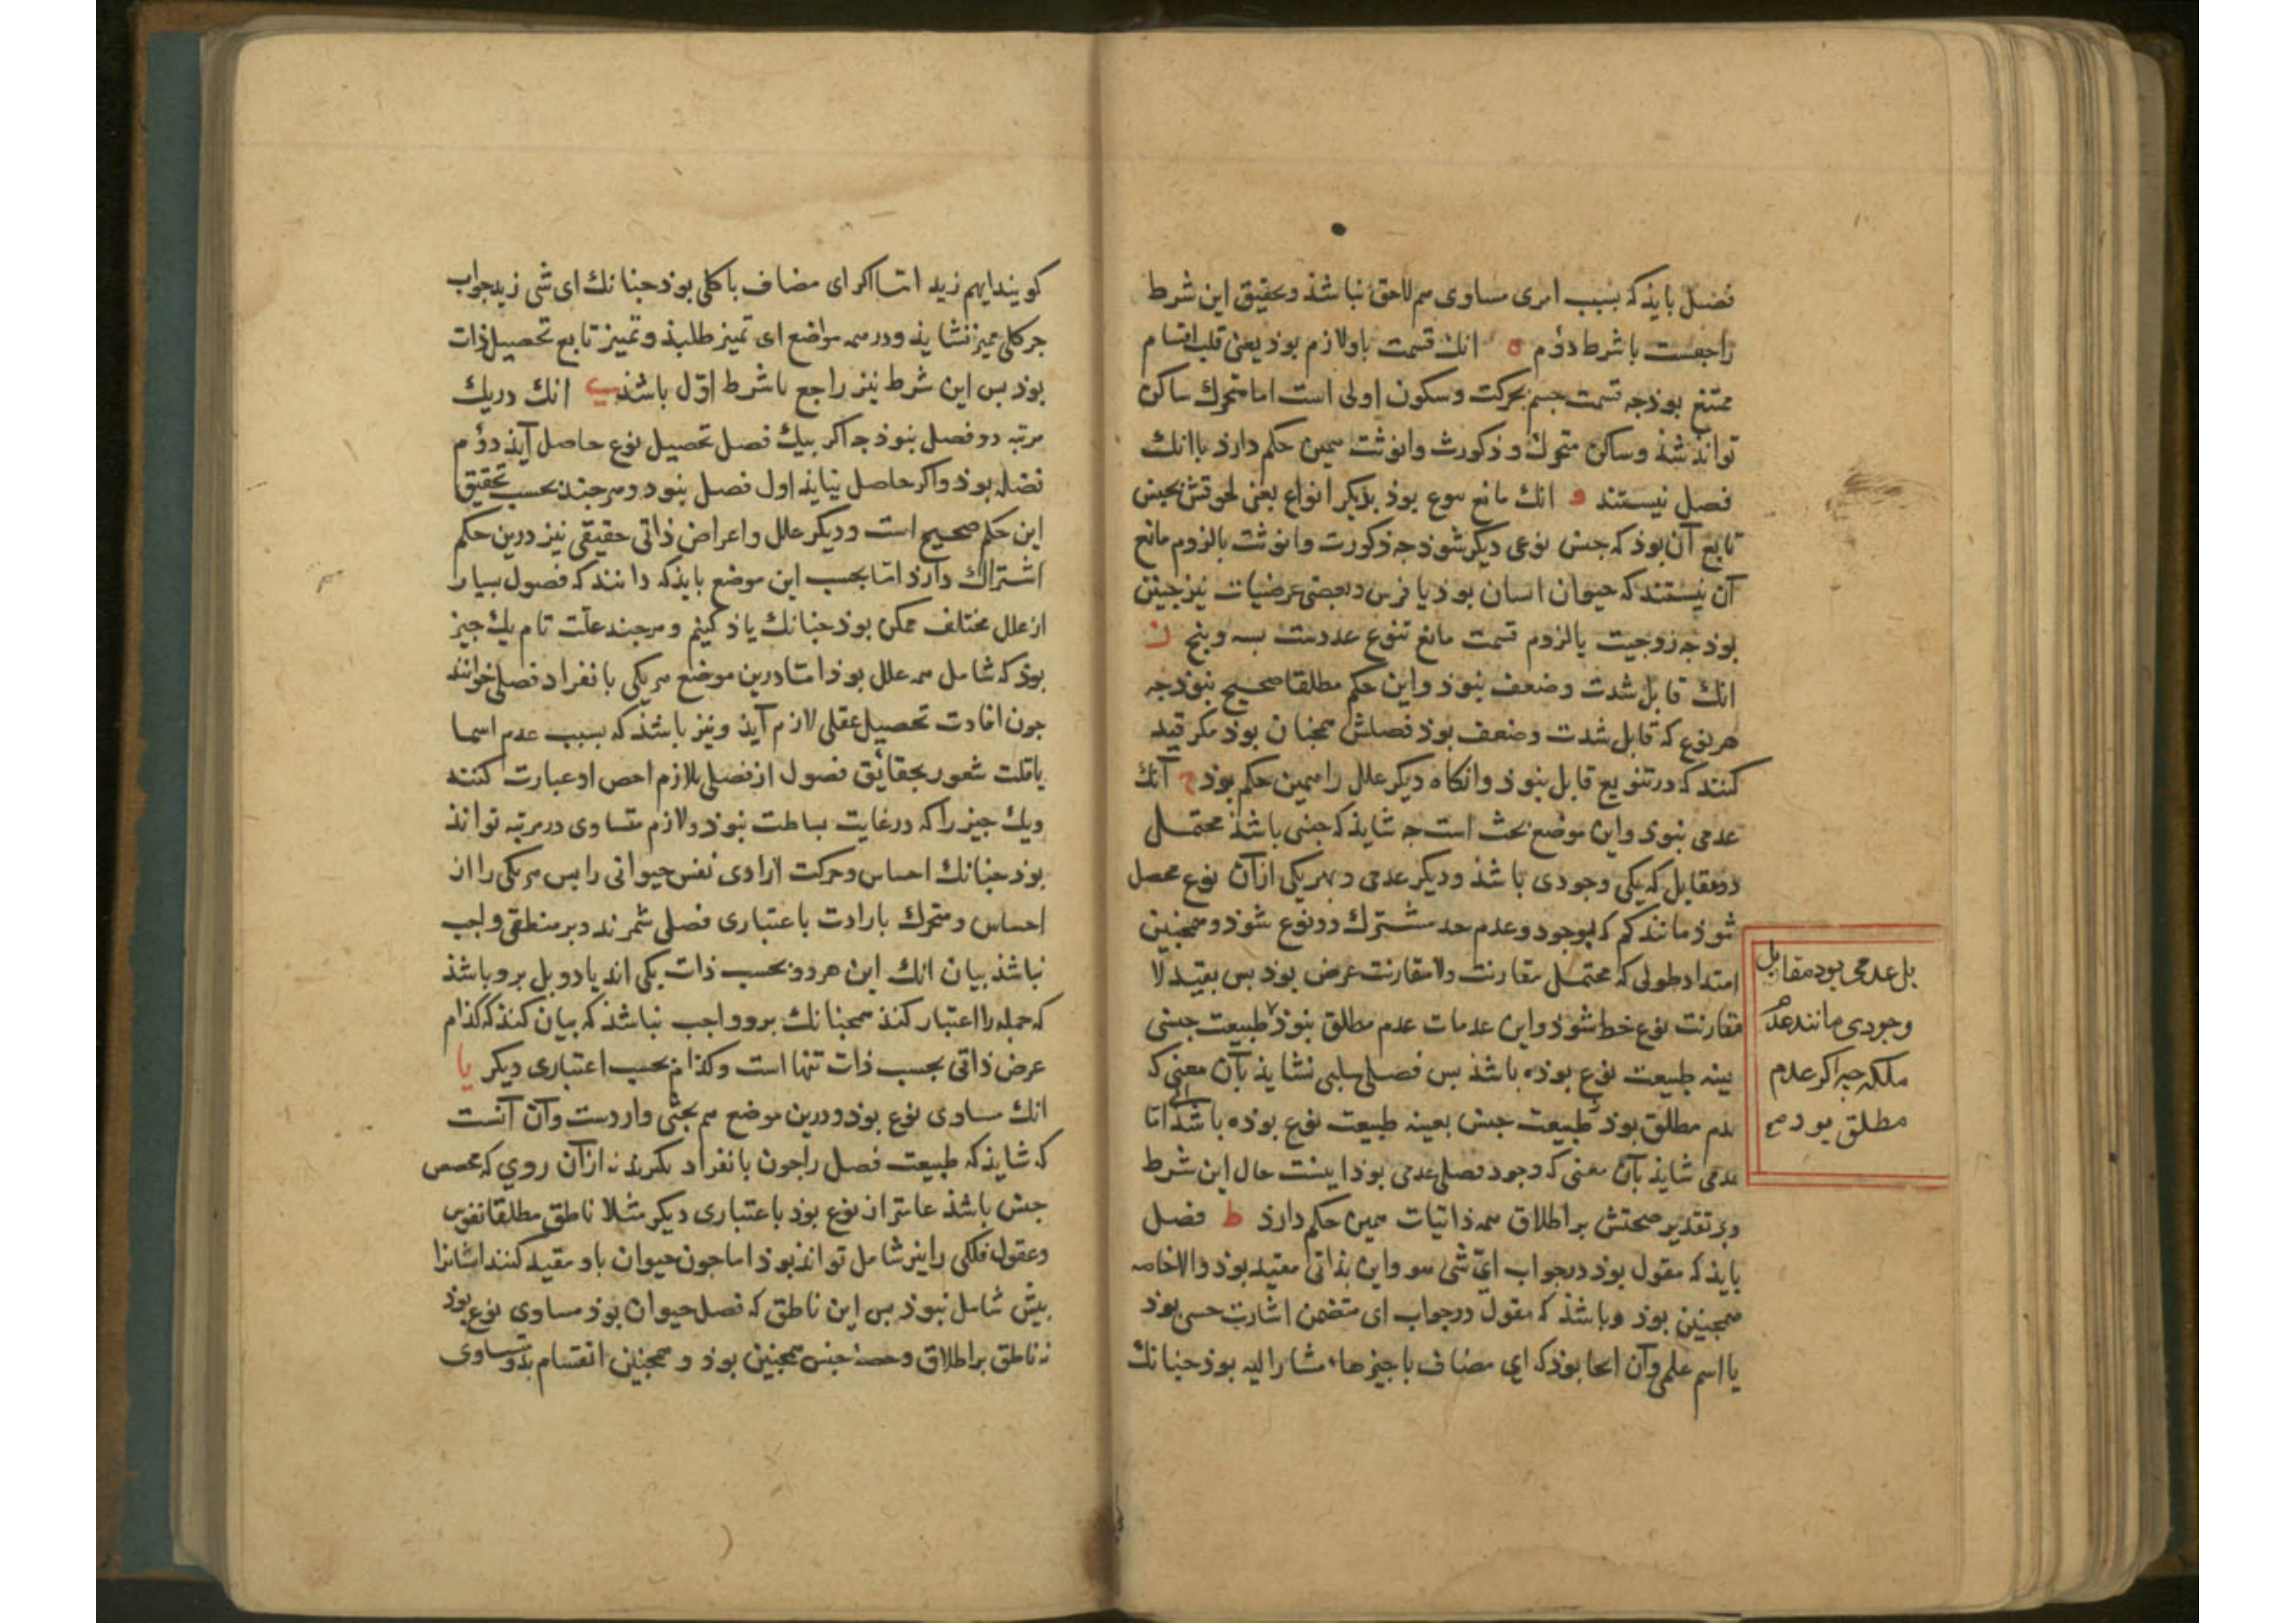 فصل بایذ که بسبب امری مساوی هم لاحق نباشذ و تحقیق این شرط
راجعست باشرط دوّم ه انک قسمت باو لازم بوذ یعنی قلب اقسام
ممتنع بوذ جه قسمت جسم بحرکت وسکون اولی است اما متحرک ساکن
تواند شذ وساکن متحرک و ذکورت وانوثت همین حکم دارد با انک
فصل نیستند و انک مانع نوع بوذ بدیکر انواع یعنی لحوقش بجنس
تابع آن بوذ که جنس نوعی دیکر شوذ جه ذکورت وانوثت بالزوم مانع
آن نیستند که حیوان انسان بوذ یا فرس وبعضی عرضیات نیز جنین
بوذ جه زوجیت یا لزوم قسمت مانع تنوع عددست بسه وبنج ز
انک قابل شدت وضعف نبوذ واین حکم مطلقا صحیح نبوذ جه
هر نوع که قابل شدت وضعف بوذ فصلش همجنان بوذ مکر قید
کنند که در تنویع قابل نبوذ وانکاه دیکر علل را همین حکم بوذ ح آنک
عدمی نبوذ واین موضع بحث است جه شایذ که جنسی باشذ محتمل
دو مقابل که یکی وجودی باشذ ودیکر عدمی و بهریکی ازان نوع محصل
شوذ مانند کم که بوجود وعدم حد مشترک دو نوع شوذ و همجنین
امتداد طولی که محتمل مقارنت ولا مقارنت عرض بوذ بس بقید لا
مقارنت نوع خط شوذ واین عدمات عدم مطلق نبوذ طبیعت جنسی
بعینه طبیعت نوع بوذه باشذ بس فصلی سلبی نشایذ بآن معنی که
عدم مطلق بوذ طبیعت جنس بعینه طبیعت نوع بوذه باشد امّا
عدمی شایذ بآن معنی که وجود فصلی عدمی بوذ اینست حال این شرط
وبر تقدیر صحتش بر اطلاق همه ذاتیات همین حکم دارذ ط فصل
بایذ که مقول بوذ در جواب ایّ شی هو واین بذاتی مقید بوذ والا خاصه
همجنین بوذ وباشذ که مقول در جواب ای متضمن اشارت حسی بوذ
یا اسم علمی وآن انجا بوذ که ای مضاف با جیزهاء مشار الیه بوذ جنانک
بل عدمی بود مقابل
وجودی مانند عدم
ملکه جه اکر عدم
مطلق بود صح
کویند ایهم زید امّا اکر ای مضاف با کلی بوذ جنانک ای شی زید جواب
جز کلی ممیز نشایذ ودر همه مواضع ای تمیز طلبذ وتمیز تابع تحصیل ذات
بوذ بس این شرط نیز راجع باشرط اوّل باشذ ی انک در یک
مرتبه دو فصل نبوذ جه اکر بیک فصل تحصیل نوع حاصل آیذ دوّم
فضله بوذ واکر حاصل نیایذ اول فصل نبود وهرجند بحسب تحقیق
این حکم صحیح است ودیکر علل واعراض ذاتی حقیقی نیز درین حکم
اشتراک دارذ امّا بحسب این موضع بایذ که دانند که فصول بسیار
از علل مختلف ممکن بوذ جنانک یاذ کنیم وهرجند علّت تام یک جیز
بوذ که شامل همه علل بوذ امّا درین موضع هر یکی بانفراد فصلی خوانند
جون افادت تحصیل عقلی لازم آیذ ونیز باشذ که بسبب عدم اسما
یا قلت شعور بحقائق فصول از فصلی بلازم اخص او عبارت کنند
ویک جیز را که در غایت بساطت نبوذ دو لازم متساوی در مرتبه تواند
بوذ جنانک احساس وحرکت ارادی نفس حیوانی را بس هر یکی را از
احساس ومتحرک بارادت باعتباری فصلی شمرند وبر منطقی واجب
نباشذ بیان انک این هر دو بحسب ذات یکی اند یا دو بل برو باشذ
که جمله را اعتبار کنذ همجنانک برو واجب نباشذ که بیان کند که کذام
عرض ذاتی بحسب ذات تنها است وکذام بحسب اعتباری دیکر یا
انک مساوی نوع بوذ ودرین موضع هم بحثی واردست وآن آنست
که شایذ که طبیعت فصل را جون بانفراد نکرند نه ازآن روی که مخصص
جنس باشذ عامتر از نوع بوذ باعتباری دیکر مثلا ناطق مطلقا نفوس
وعقول فلکی را نیز شامل تواند بوذ اما جون حیوان باو مقید کنند ایشانرا
بیش شامل نبوذ بس این ناطق که فصل حیوان بوذ مساوی نوع بوذ
نه ناطق بر اطلاق وحصهٔ جنس همجنین بوذ و همجنین انقسام بدو متساوی